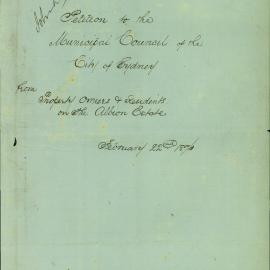 Petition to the
Municipal Council of the
City of Sydney
from
Property Owners & Residents
on the Albion Estate
February 22nd